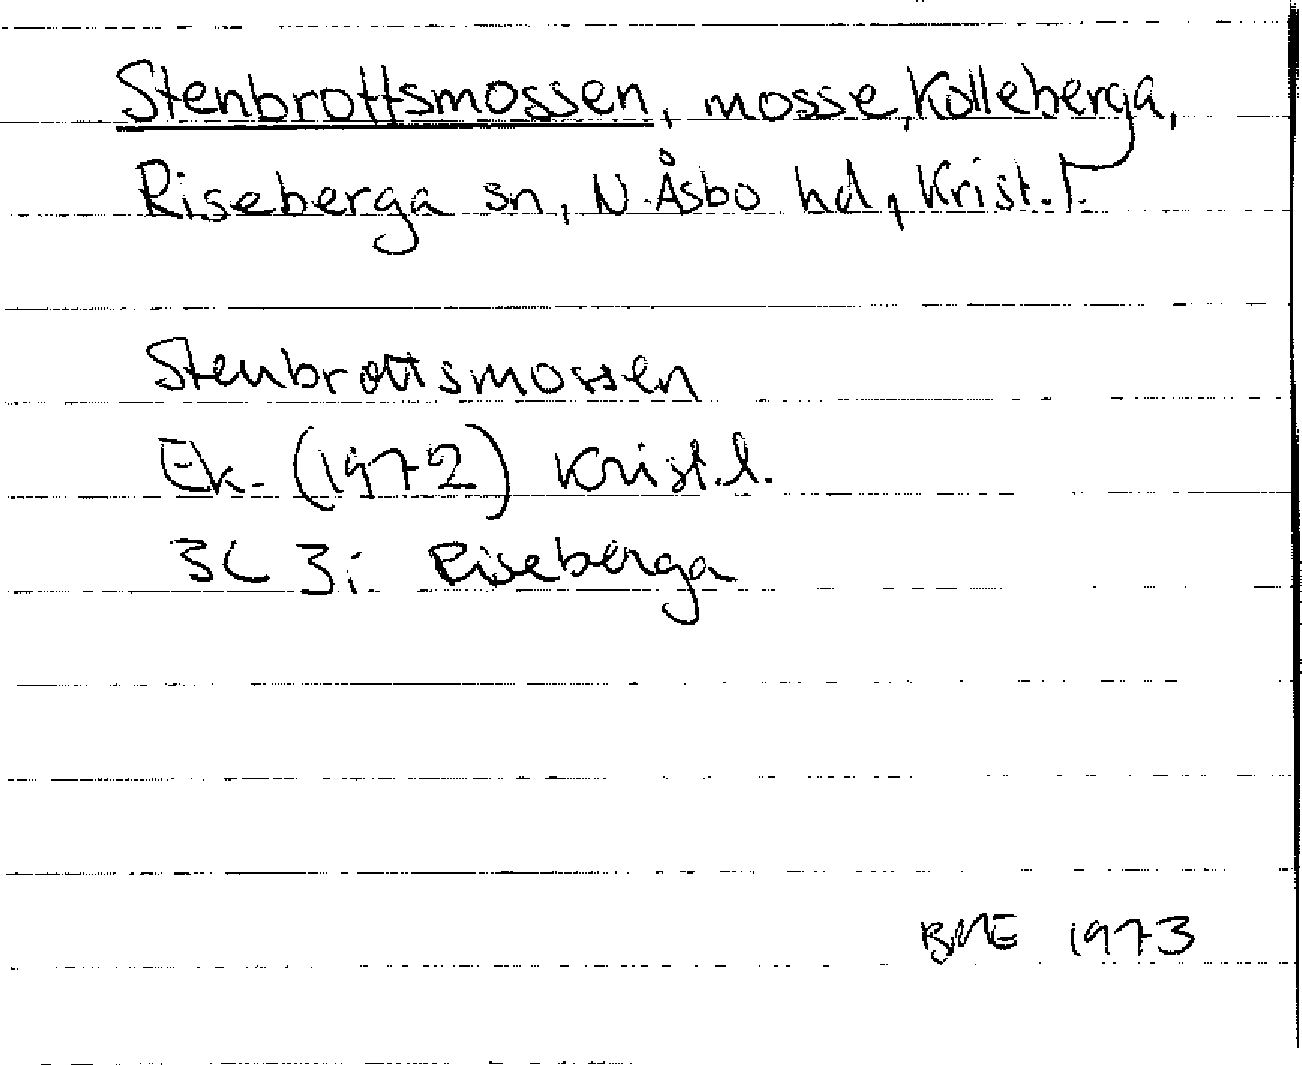 Stenbrottsmossen, mosse, Kolleberga,
Riseberga sn, N.Åsbo hd, Krist.l.
Stenbrottsmossen
Ek. (1972) Krist.l.
3C 3i Riseberga
BME 1973